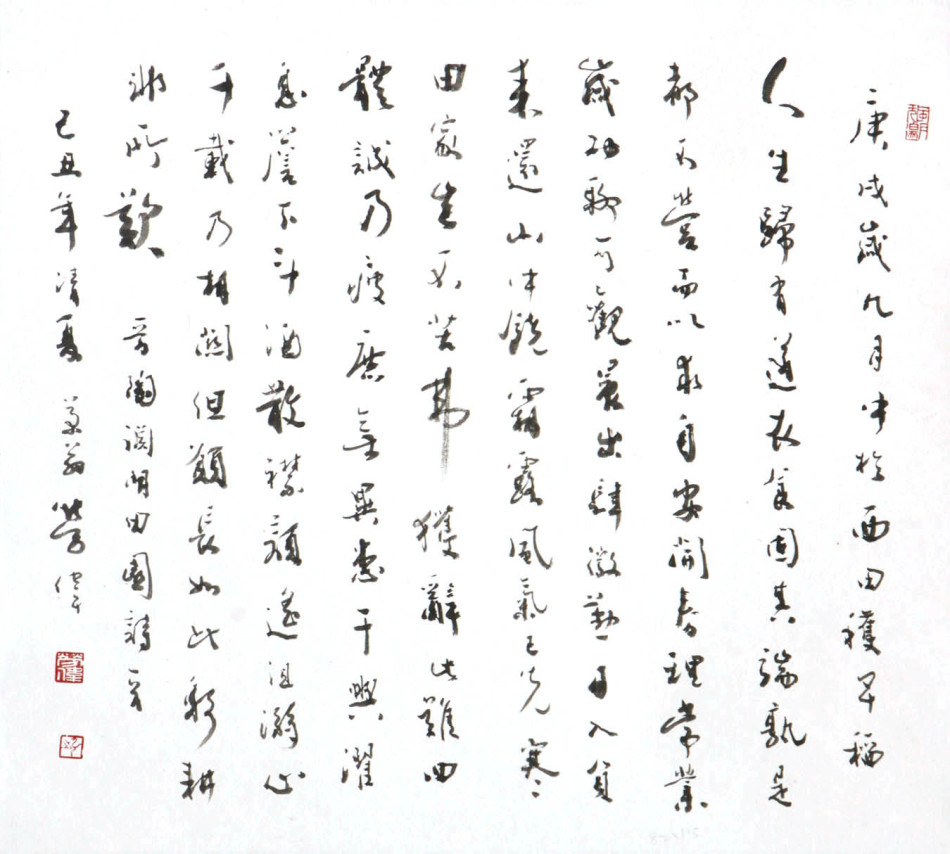 庚戌歲九月中於西田穫早稻
人生歸有道衣食固其端孰是
都不營而以求自安開春理常業
歲功聊可觀晨出肆微勤日入負
耒還山中饒霜露風氣已先寒
田家豈不苦弗獲辭此難四
體誠乃疲庶無異患干盥濯
息簷下斗酒散襟顏遙沮溺心
千載乃相關但願長如此躬耕
非所歎 晉陶淵明田園詩一首
己丑年清夏